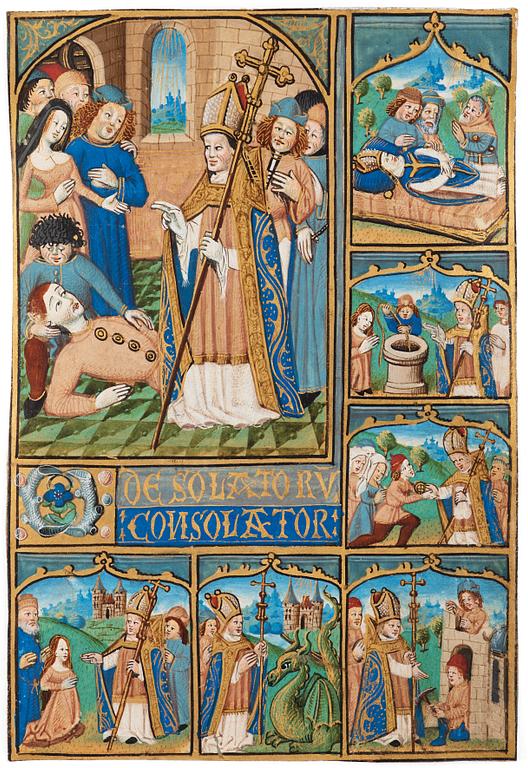 O
DESOLATORU
CONSOLATOR